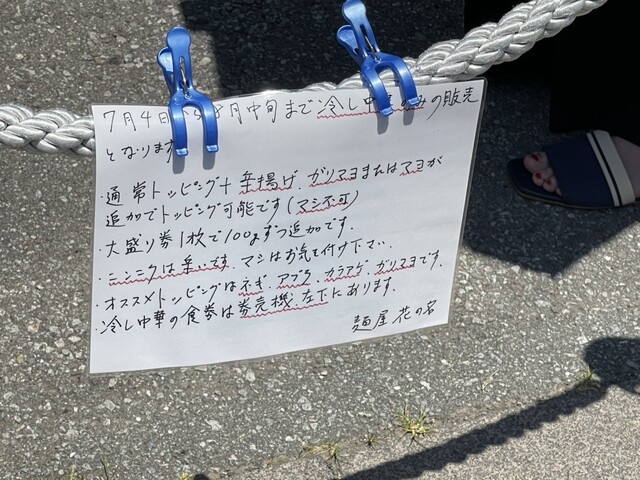 7月4日から8月中旬まで冷し中華のみの販売
となります
・通常トッピング+辛揚げ、ガリマヨまたはマヨが
追加でトッピング可能です(マシ不可)
・大盛り券1枚で100gずつ追加です。
・ニンニクは辛いです。マシはお気を付け下さい。
・オススメトッピングはネギ、アブラ、カラアゲ、ガリマヨです。
・冷し中華の食券は券売機左下にあります。
麺屋 花の名